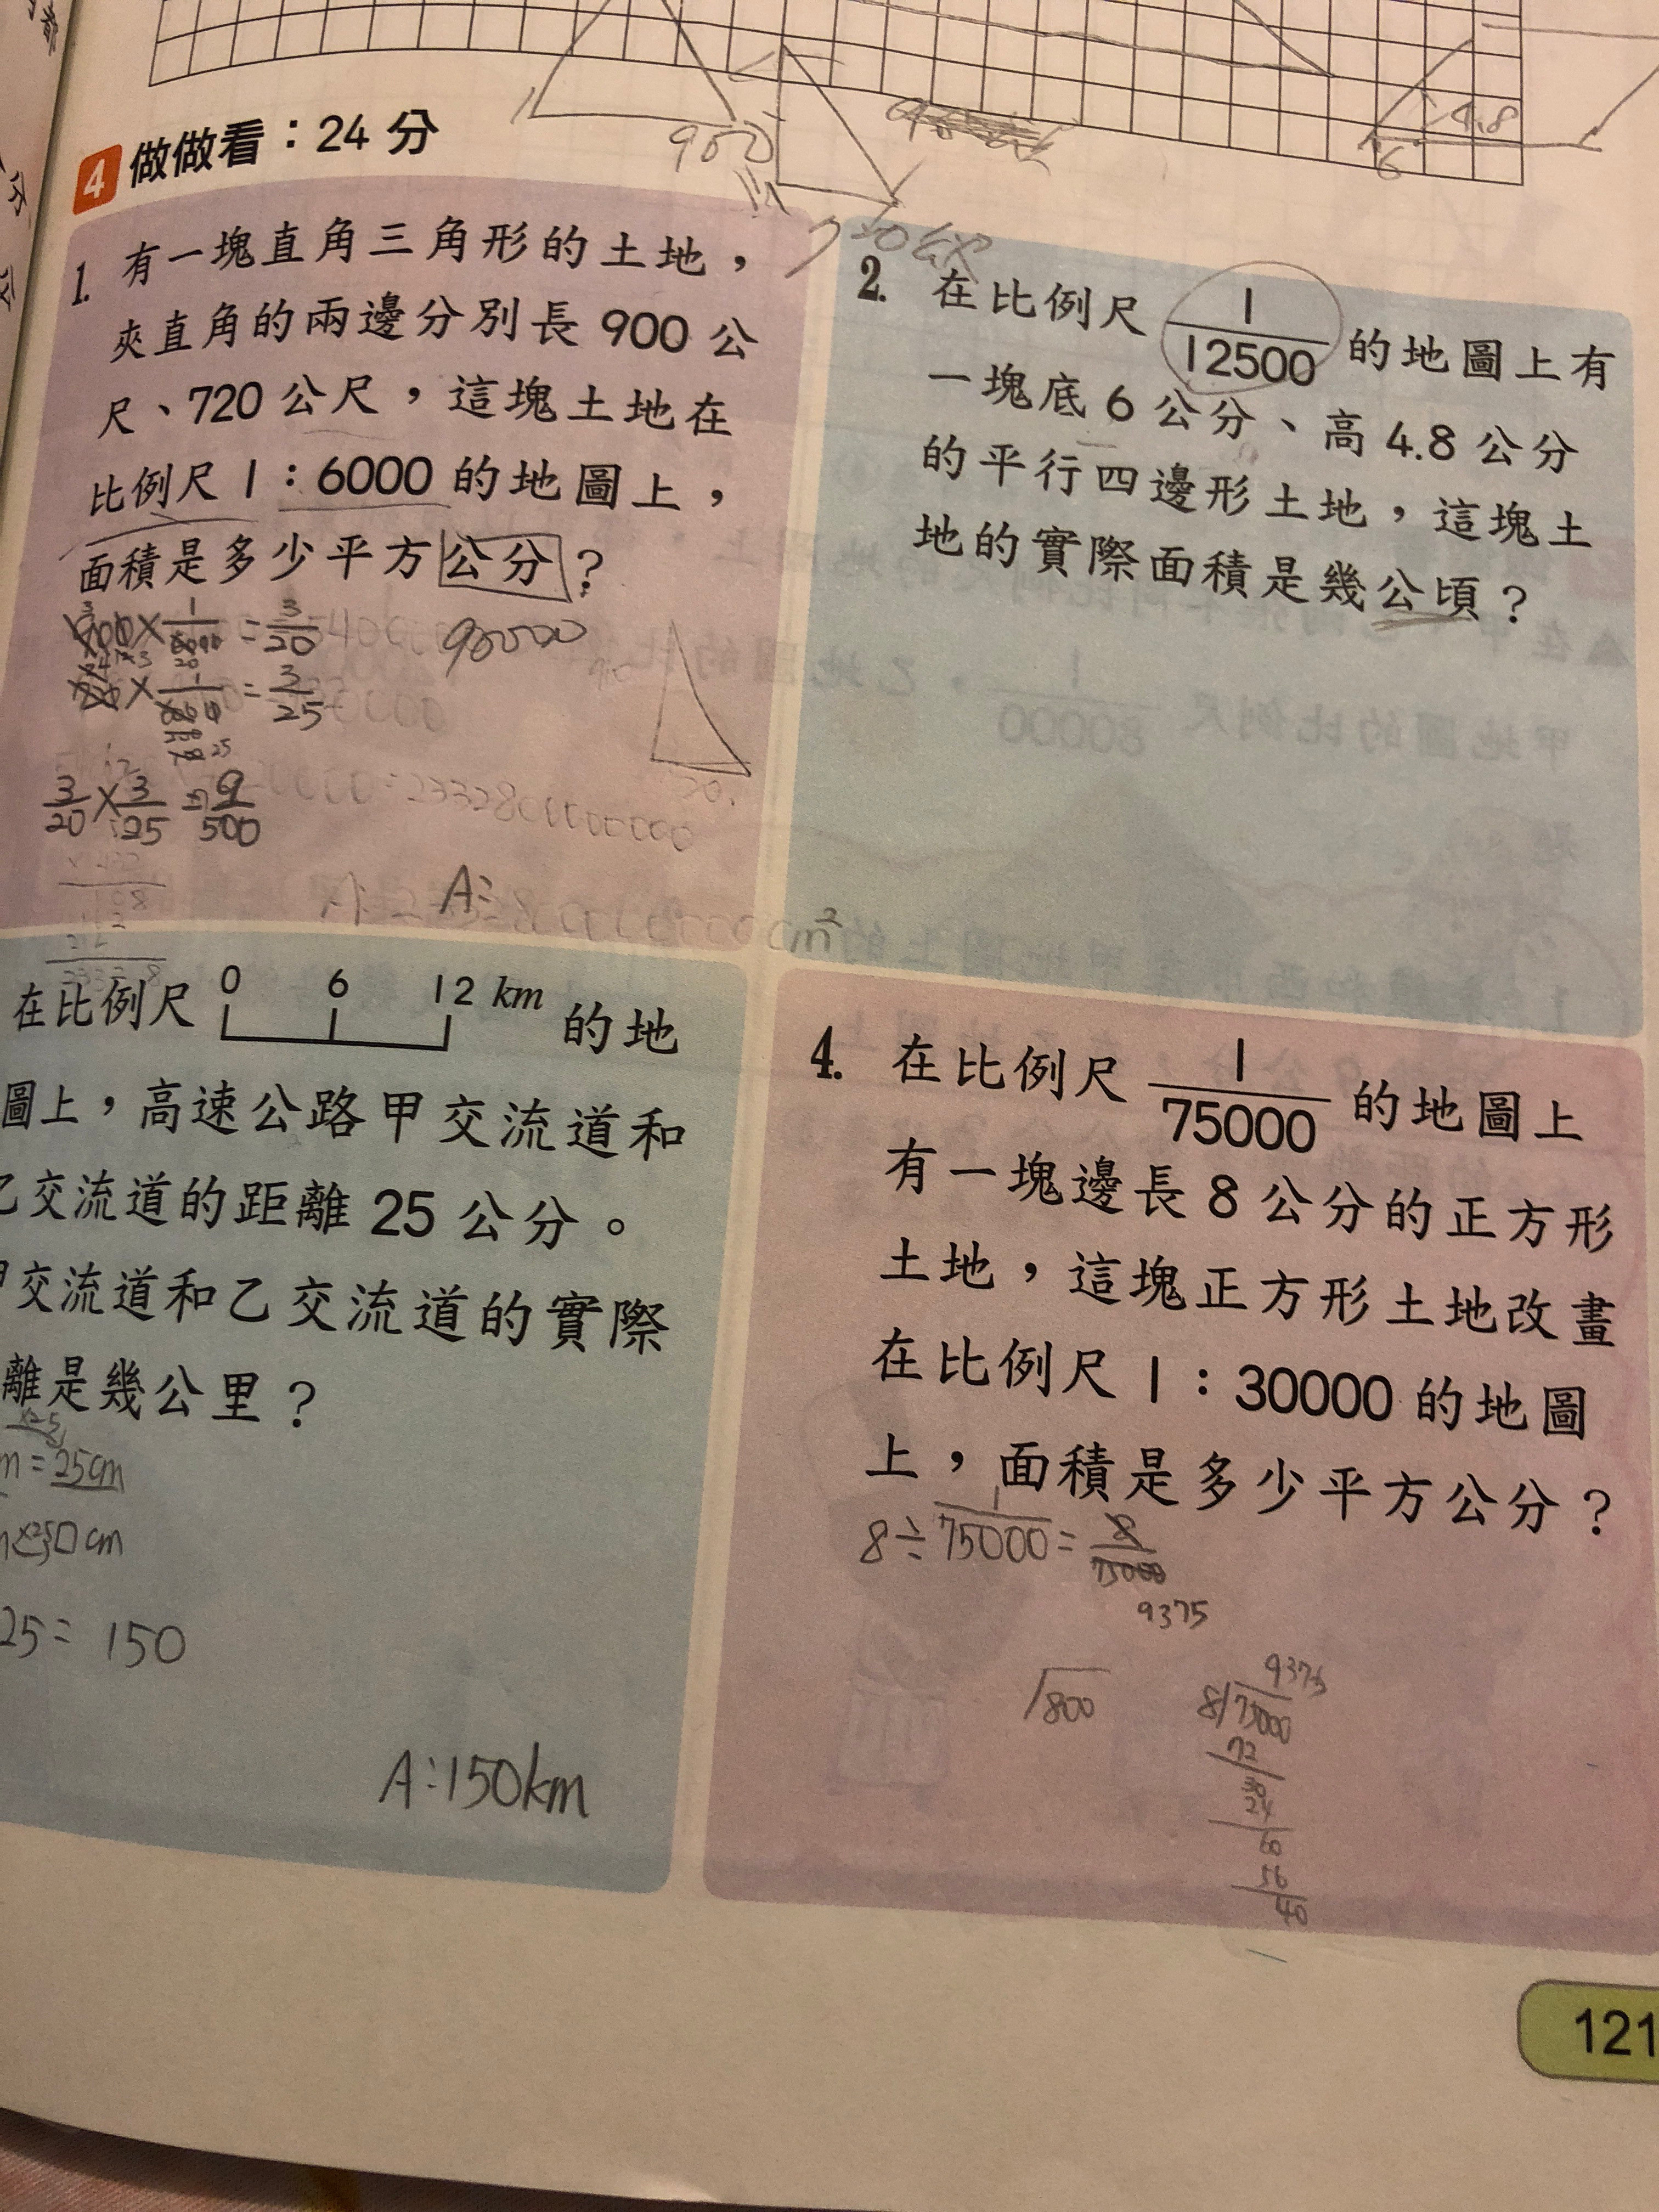 4.8
6
900
4 做做看：24 分
720
1. 有一塊直角三角形的土地，
夾直角的兩邊分別長 900 公
尺、720 公尺，這塊土地在
比例尺 1：6000 的地圖上，
面積是多少平方公分？
= 3/20
90000
= 3/25
3/20 × 3/25 = 9/500
A:
2. 在比例尺 1/12500 的地圖上有
一塊底 6 公分、高 4.8 公分
的平行四邊形土地，這塊土
地的實際面積是幾公頃？
在比例尺 0 6 12 km 的地
圖上，高速公路甲交流道和
乙交流道的距離 25 公分。
甲交流道和乙交流道的實際
離是幾公里？
m = 25cm
25 = 150
A:150km
4. 在比例尺 1/75000 的地圖上
有一塊邊長 8 公分的正方形
土地，這塊正方形土地改畫
在比例尺 1：30000 的地圖
上，面積是多少平方公分？
8 ÷ 1/75000 = 8/75000
9375
800
9375
8 75000
72
30
24
60
56
40
121